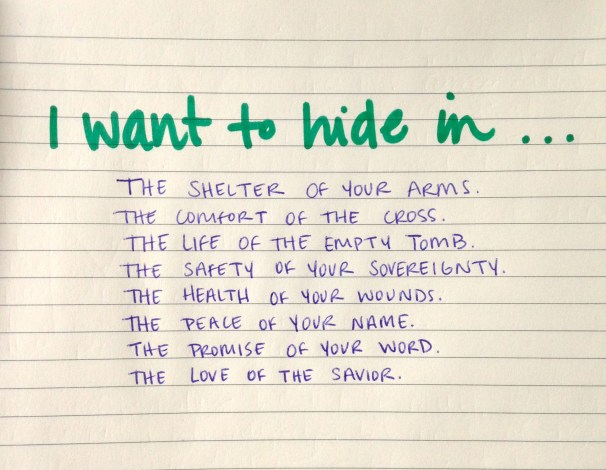 I want to hide in ...
THE SHELTER OF YOUR ARMS.
THE COMFORT OF THE CROSS.
THE LIFE OF THE EMPTY TOMB.
THE SAFETY OF YOUR SOVEREIGNTY.
THE HEALTH OF YOUR WOUNDS.
THE PEACE OF YOUR NAME.
THE PROMISE OF YOUR WORD.
THE LOVE OF THE SAVIOR.